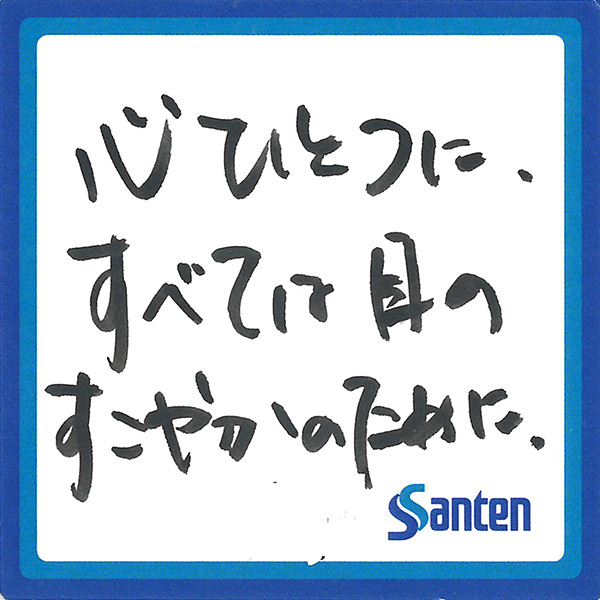 心ひとつに、
すべては目の
すこやかのために、
Santen